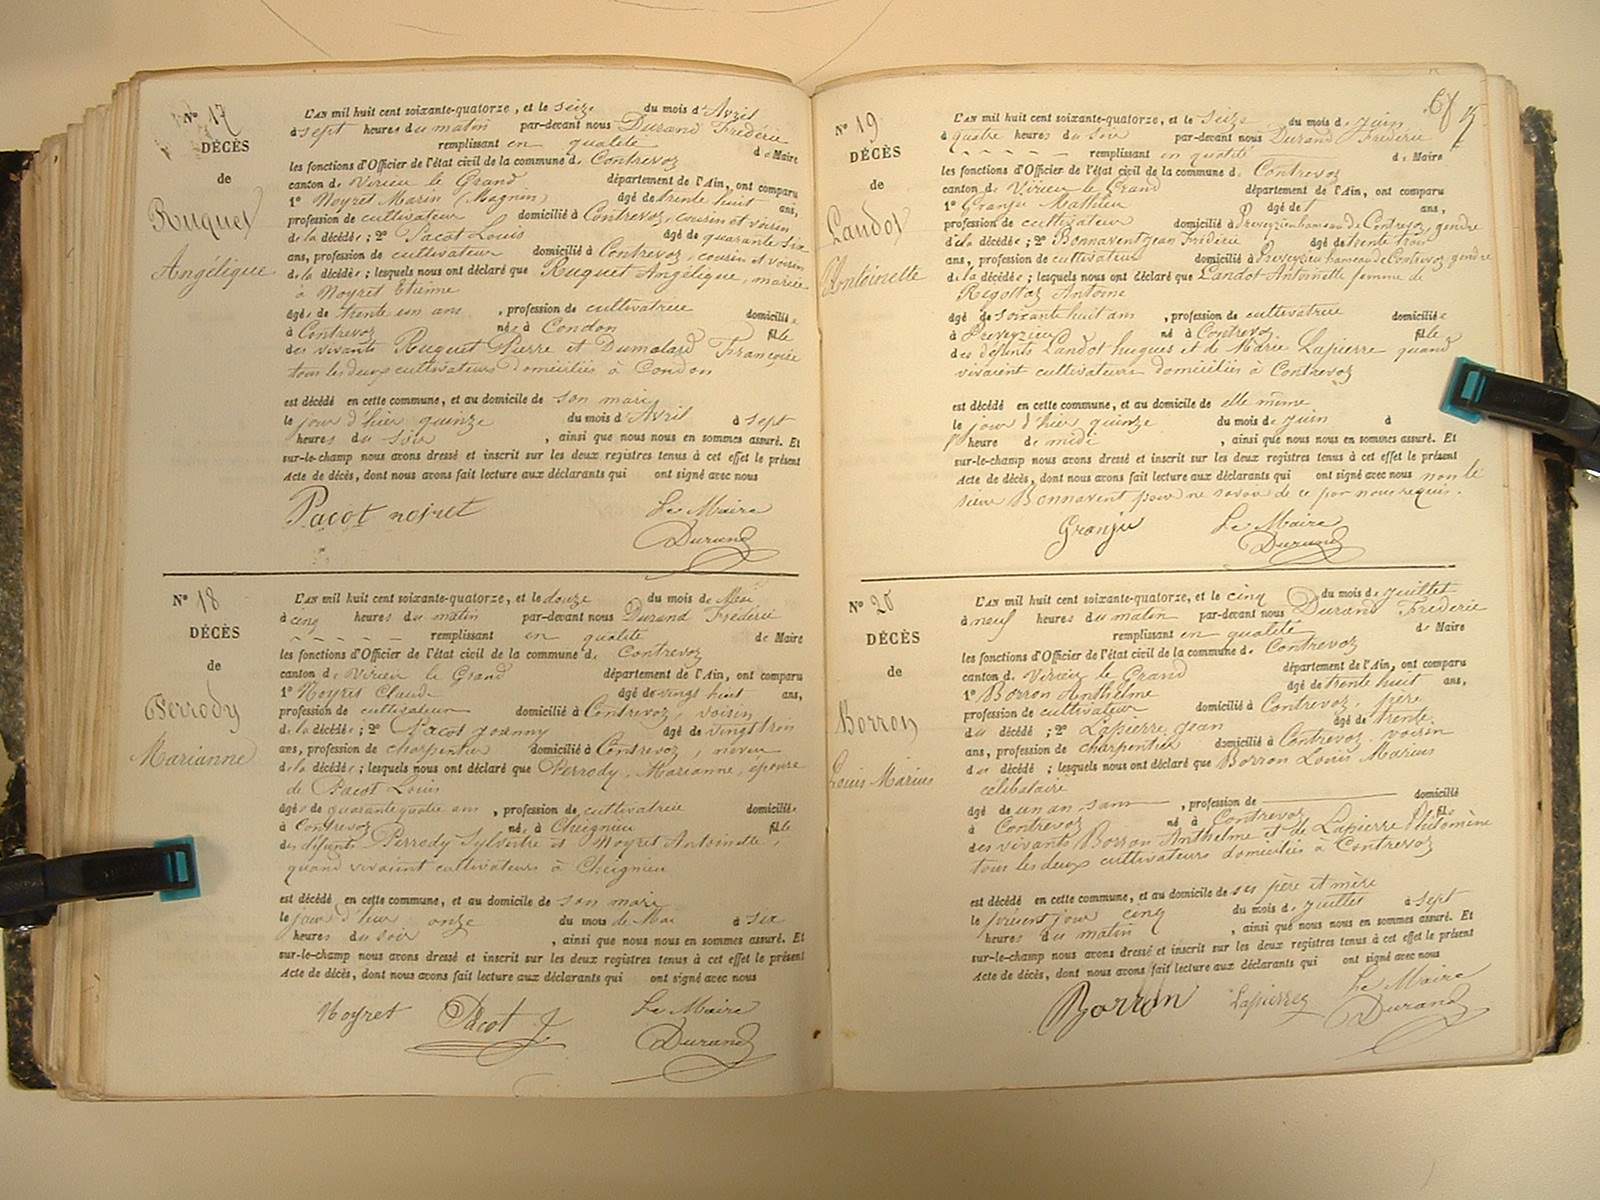 N° 17
DÉCÈS
de
Ruquet
Angélique
L'AN mil huit cent soixante-quatorze, et le seize du mois d'Avril
à sept heures du matin par-devant nous Durand Fréderic
remplissant en qualité de Maire
les fonctions d'Officier de l'état civil de la commune de Contrevoz
canton de Virieu le Grand département de l'Ain, ont comparu
1° Noyret Marin (Magnin) âgé de trente huit ans,
profession de cultivateur domicilié à Contrevoz, cousin et voisin
de la décédée ; 2° Pacot Louis âgé de quarante six
ans, profession de cultivateur domicilié à Contrevoz, cousin et voisin
de la décédée ; lesquels nous ont déclaré que Ruquet Angélique, mariée
à Noyret Etienne
âgée de trente un ans , profession de cultivatrice domiciliée
à Contrevoz née à Condon fille
des vivants Ruquet Pierre et Dumolard Françoise
tous les deux cultivateurs domiciliés à Condon
est décédé en cette commune, et au domicile de son mari
le jour d'hier quinze du mois d'Avril à sept
heures du soir , ainsi que nous nous en sommes assuré. Et
sur-le-champ nous avons dressé et inscrit sur les deux registres tenus à cet effet le présent
Acte de décès, dont nous avons fait lecture aux déclarants qui ont signé avec nous
Pacot noyret Le Maire
Durand
N° 18
DÉCÈS
de
Perrody
Marianne
L'AN mil huit cent soixante-quatorze, et le douze du mois de Mai
à cinq heures du matin par-devant nous Durand Fréderic
remplissant en qualité de Maire
les fonctions d'Officier de l'état civil de la commune de Contrevoz
canton de Virieu le Grand département de l'Ain, ont comparu
1° Noyret Claude âgé de vingt huit ans,
profession de cultivateur domicilié à Contrevoz, voisin
de la décédée ; 2° Pacot Joanny âgé de vingt trois
ans, profession de charpentier domicilié à Contrevoz, neveu
de la décédée ; lesquels nous ont déclaré que Perrody, Marianne, épouse
de Pacot Louis
âgée de quarante quatre ans , profession de cultivatrice domiciliée
à Contrevoz née à Cheignieu fille
des défunts Perrody Sylvestre et Noyret Antoinette,
quand vivaient cultivateurs à Cheignieu
est décédé en cette commune, et au domicile de son mari
le jour d'hier onze du mois de Mai à six
heures du soir , ainsi que nous nous en sommes assuré. Et
sur-le-champ nous avons dressé et inscrit sur les deux registres tenus à cet effet le présent
Acte de décès, dont nous avons fait lecture aux déclarants qui ont signé avec nous
Noyret Pacot J Le Maire
Durand
N° 19
DÉCÈS
de
Landot
Antoinette
L'AN mil huit cent soixante-quatorze, et le seize du mois de juin
à quatre heures du soir par-devant nous Durand Fréderic
remplissant en qualité de Maire
les fonctions d'Officier de l'état civil de la commune de Contrevoz
canton de Virieu le Grand département de l'Ain, ont comparu
1° Granju Mathieu âgé de ans,
profession de cultivateur domicilié à Preveyzieu hameau de Contrevoz, gendre
de la décédée ; 2° Bonnavent Jean Fréderic âgé de trente trois
ans, profession de cultivateur domicilié à Preveyzieu hameau de Contrevoz, gendre
de la décédée ; lesquels nous ont déclaré que Landot Antoinette femme de
Regottaz Antoine
âgé de soixante huit ans , profession de cultivatrice domiciliée
à Preveyzieu née à Contrevoz fille
des défunts Landot hugues et de Marie Lapierre quand
vivaient cultivateurs domiciliés à Contrevoz
est décédé en cette commune, et au domicile de elle même
le jour d'hier quinze du mois de juin à
heure de midi , ainsi que nous nous en sommes assuré. Et
sur-le-champ nous avons dressé et inscrit sur les deux registres tenus à cet effet le présent
Acte de décès, dont nous avons fait lecture aux déclarants qui ont signé avec nous non le
sieur Bonnavent pour ne savoir de ce par nous requis.
Granju Le Maire
Durand
N° 20
DÉCÈS
de
Borron
Louis Marius
L'AN mil huit cent soixante-quatorze, et le cinq du mois de juillet
à neuf heures du matin par-devant nous Durand Fréderic
remplissant en qualité de Maire
les fonctions d'Officier de l'état civil de la commune de Contrevoz
canton de Virieu le Grand département de l'Ain, ont comparu
1° Borron Anthelme âgé de trente huit ans,
profession de cultivateur domicilié à Contrevoz, père
du décédé ; 2° Lapierre Jean âgé de trente
ans, profession de charpentier domicilié à Contrevoz voisin
du décédé ; lesquels nous ont déclaré que Borron Louis Marius
célibataire
âgé de un an, sans , profession de domicilié
à Contrevoz né à Contrevoz fils
des vivants Borron Anthelme et de Lapierre Philomène
tous les deux cultivateurs domiciliés à Contrevoz
est décédé en cette commune, et au domicile de ses père et mère
le présent jour cinq du mois de juillet à sept
heures du matin , ainsi que nous nous en sommes assuré. Et
sur-le-champ nous avons dressé et inscrit sur les deux registres tenus à cet effet le présent
Acte de décès, dont nous avons fait lecture aux déclarants qui ont signé avec nous
Borron Lapierre Le Maire
Durand